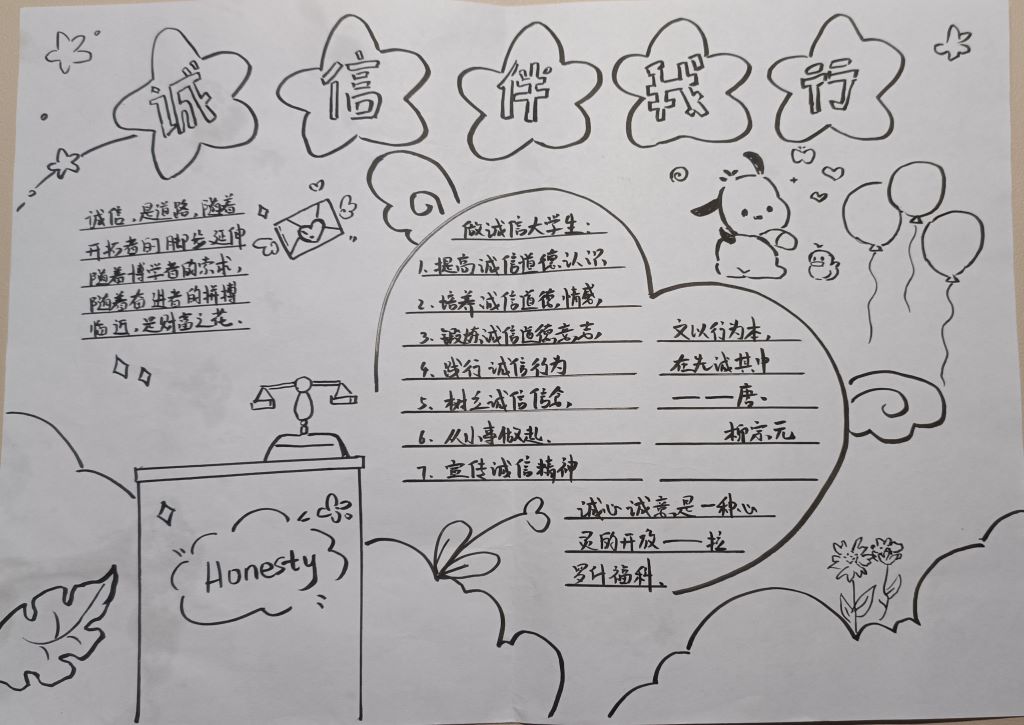 诚信伴我行
诚信,是道路,随着
开拓者的脚步延伸
随着博学者的索求,
随着奋进者的拼搏
临近,是财富之花.
做诚信大学生:
1.提高诚信道德认识
2.培养诚信道德情感,
3.锻炼诚信道德意志,
4.践行诚信行为
5.树立诚信信念,
6.从小事做起.
7.宣传诚信精神
文以行为本,
在先诚其中
——唐.
柳宗元
诚心诚意是一种心
灵的开放——拉
罗什福科、
Honesty